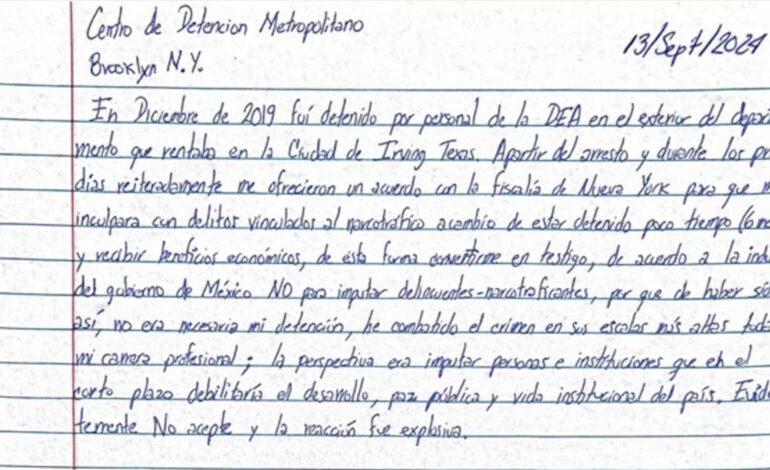 Centro de Detencion Metropolitano
13/Sept/2024
Brooklyn N.Y.
En Diciembre de 2019 fuí detenido por personal de la DEA en el exterior del depart
mento que rentaba en la Ciudad de Irving Texas. Apartir del arresto y durante los pr
días reiteradamente me ofrecieron un acuerdo con la fiscalía de Nueva York para que m
inculpara con delitos vinculados al narcotráfico acambio de estar detenido poco tiempo (6 me
y recibir beneficios económicos, de ésta forma convertirme en testigo, de acuerdo a la indu
del gobierno de México NO para imputar delincuentes-narcotraficantes, por que de haber sid
así, no era necesaria mi detención, he combatido el crimen en sus escalas más altas toda
mi carrera profesional; la perspectiva era imputar personas e instituciones que en el
corto plazo debilitaría el desarrollo, paz pública y vida institucional del país. Evide
temente No acepte y la reacción fue explosiva.